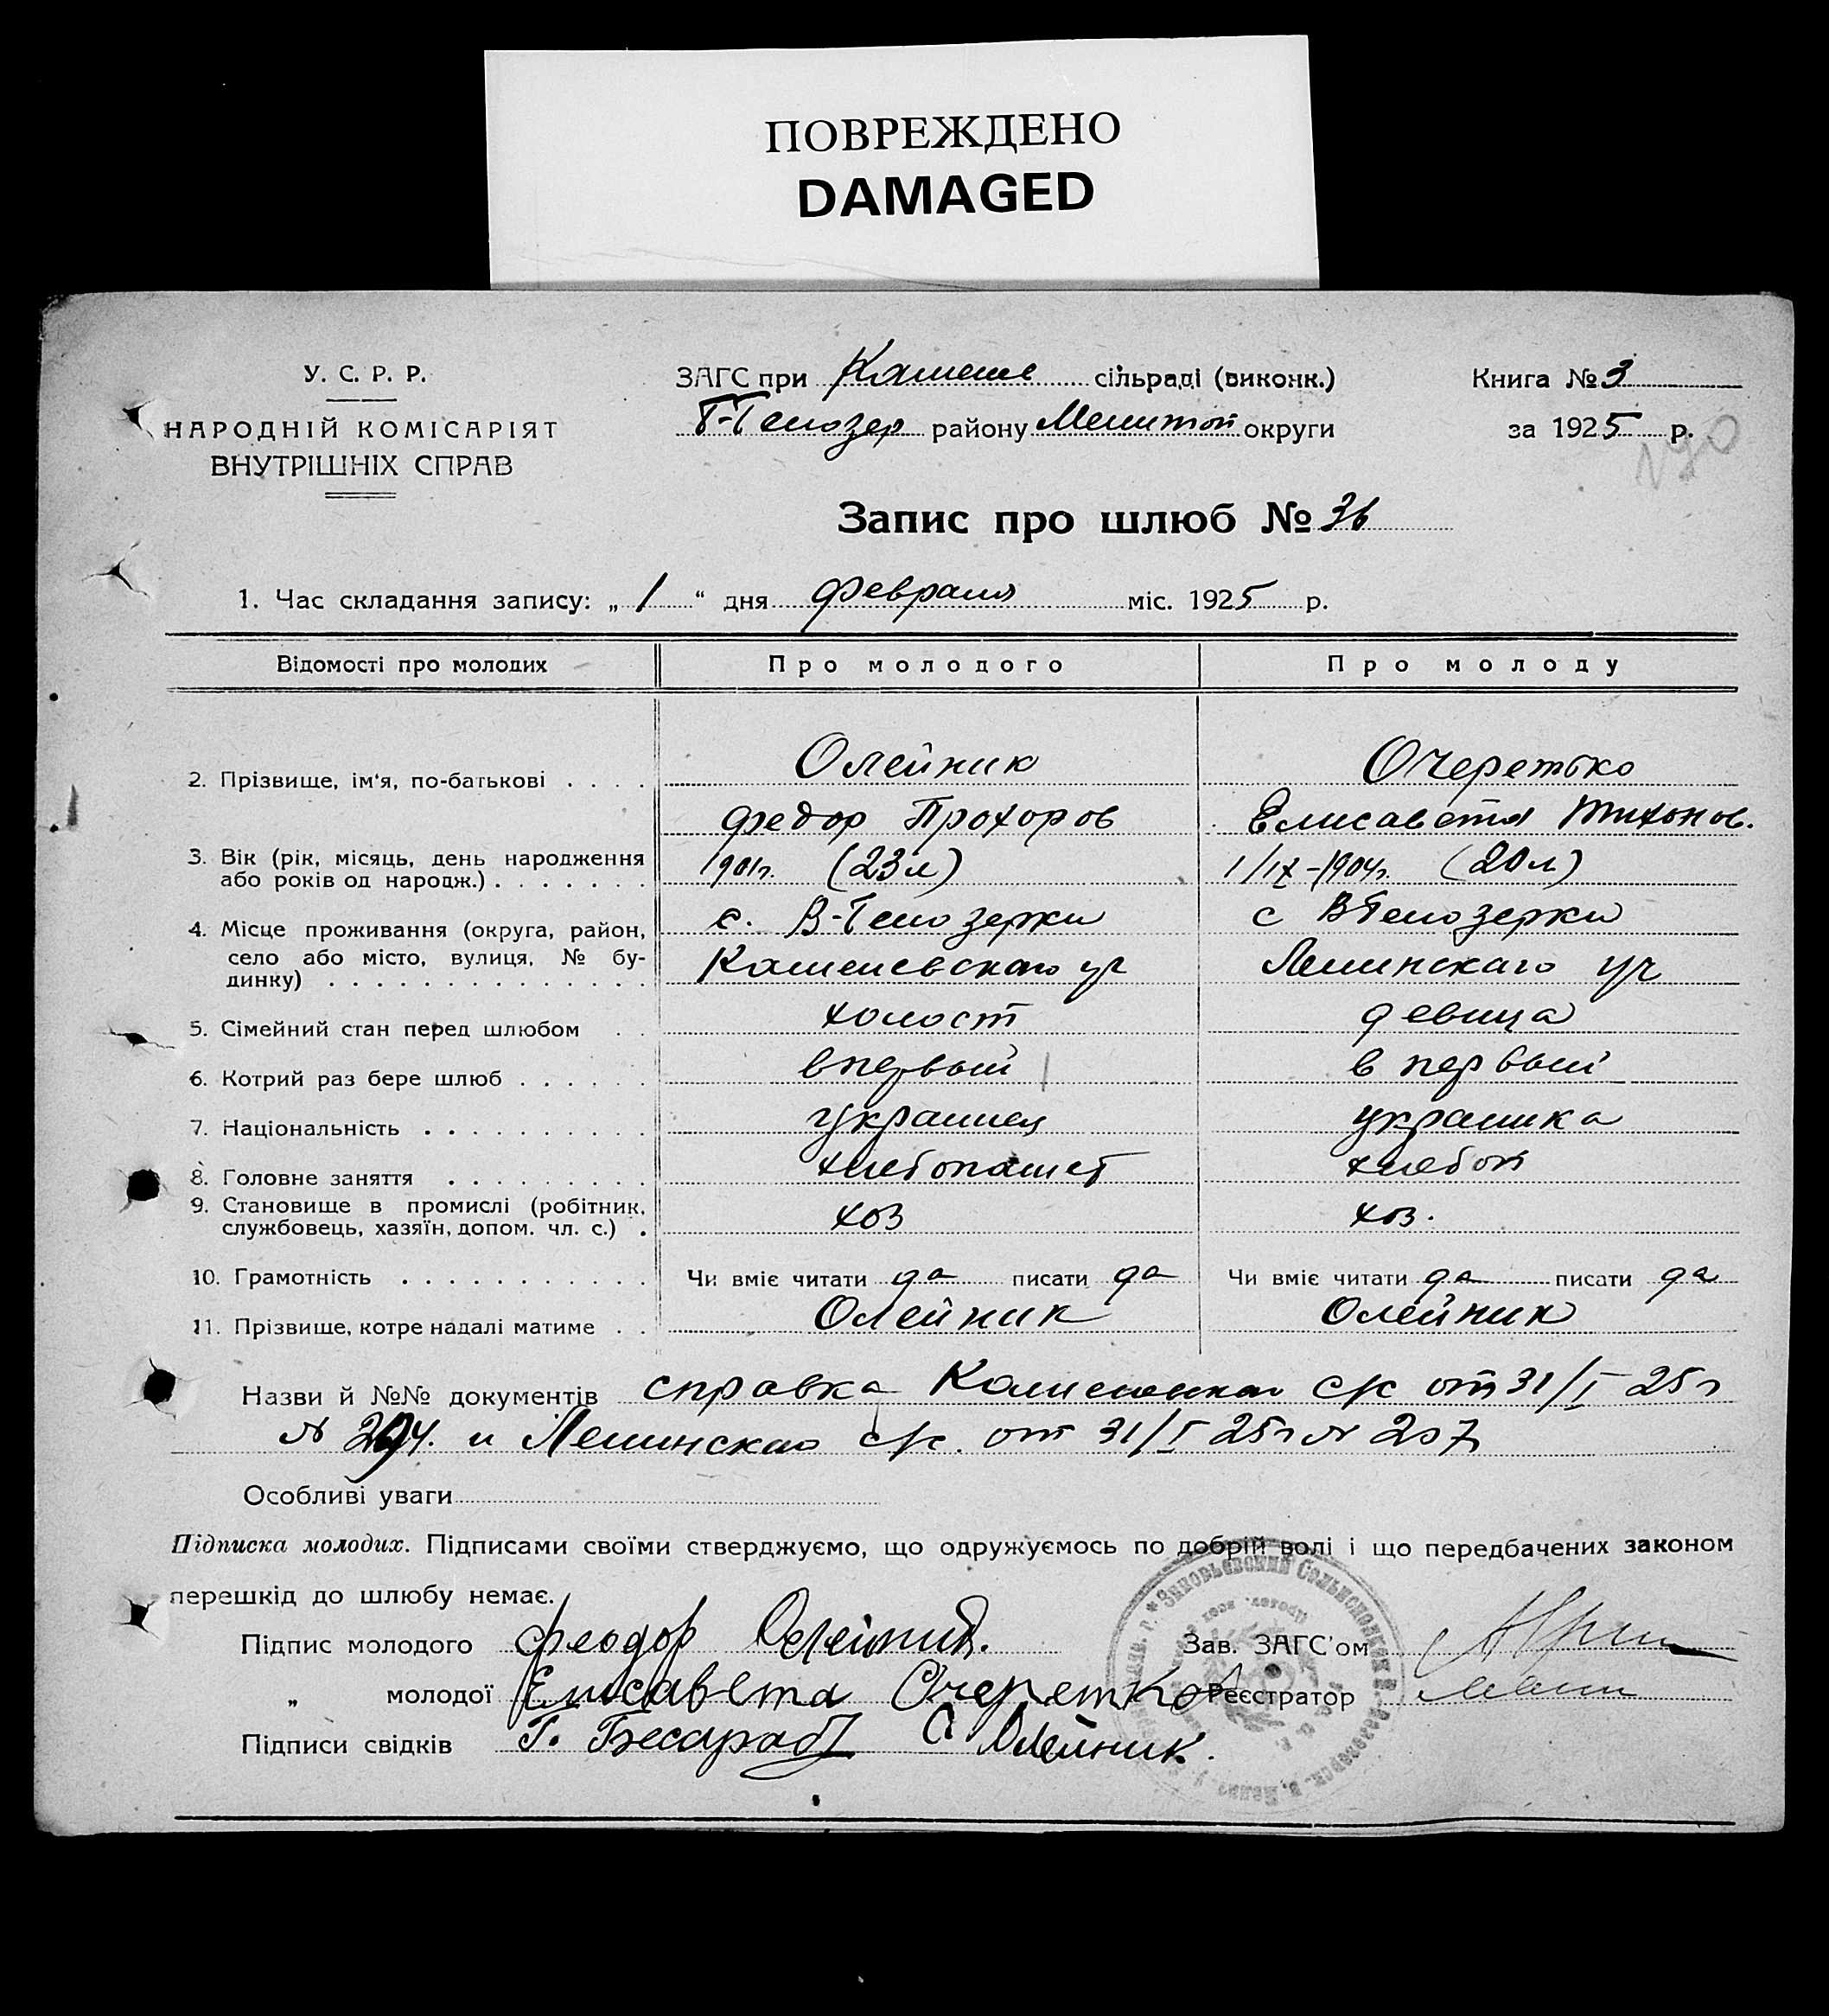 ПОВРЕЖДЕНО
DAMAGED
У. С. Р. Р.
НАРОДНІЙ КОМІСАРІЯТ
ВНУТРІШНІХ СПРАВ
ЗАГС при Камене сільраді (виконк.)
району Мелитоп округи
Книга № 3
за 1925 р.
190
Запис про шлюб № 36
1. Час складання запису: „ 1 “ дня февраля міс. 1925 р.
Відомості про молодих Про молодого Про молоду
2. Прізвище, ім‘я, по-батькові . . . . Олейник Очеретько
Федор Прохоров Елисавета Тихонов.
3. Вік (рік, місяць, день народження
або років од народж.) . . . . . . . 1901г. (23л) 1/IX-1904г. (20л)
4. Місце проживання (округа, район, с. В-Белозерки с В Белозерки
село або місто, вулиця, № бу-
динку) . . . . . . . . . . . . . . Каменевскаго уч Ленинскаго уч
5. Сімейний стан перед шлюбом . . холост девица
6. Котрий раз бере шлюб . . . . . . впервый в первый
7. Національність . . . . . . . . . . украинец украинка
8. Головне заняття . . . . . . . . . хлебопашет хлебоп
9. Становище в промислі (робітник,
службовець, хазяїн, допом. чл. с.) . хоз хоз.
10. Грамотність . . . . . . . . . . . Чи вміє читати да писати да Чи вміє читати да писати да
11. Прізвище, котре надалі матиме . . Олейник Олейник
Назви й №№ документів справка с/с от 31/I 25г
№ 294. и Ленинскаго с/с. от 31/I 25г № 207
Особливі уваги
Підписка молодих. Підписами своїми стверджуємо, що одружуємось по добрій волі і що передбачених законом
перешкід до шлюбу немає.
Підпис молодого Феодор Олейник. Зав. ЗАГС'ом
„ молодої Елисавета Очеретко Реєстратор
Підписи свідків Г. Бесараб С Олейник.
Зиновьевский Сельисполком